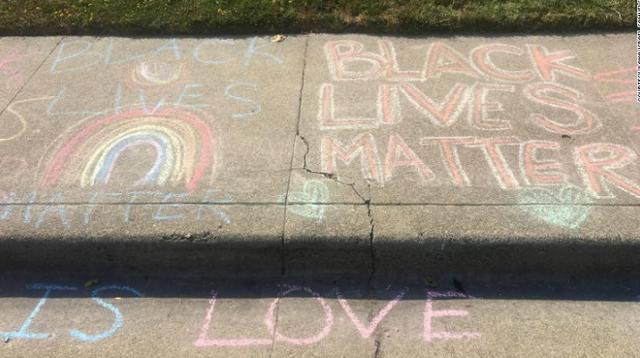 BLACK
LIVES
MATTER
BLACK
LIVES
MATTER
IS LOVE